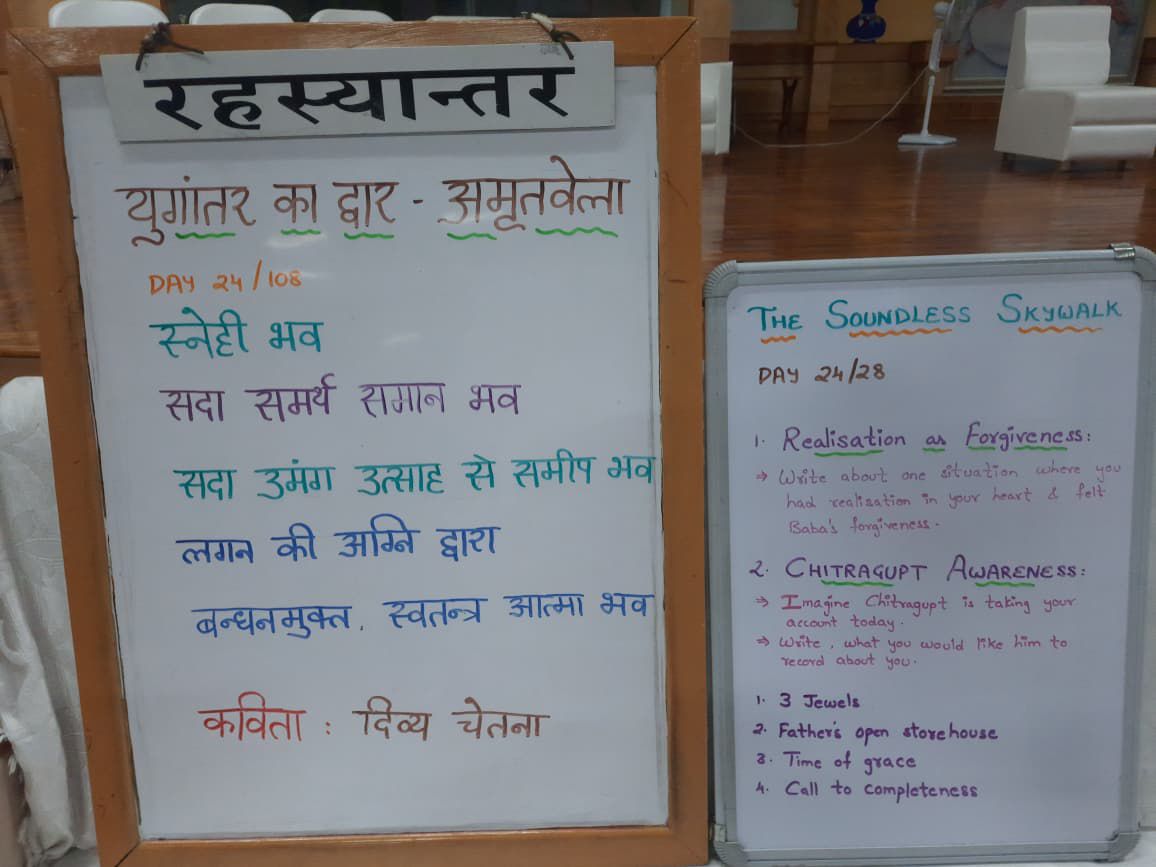 रहस्यान्तर
युगांतर का द्वार - अमृतवेला
DAY 24/108
स्नेही भव
सदा समर्थ समान भव
सदा उमंग उत्साह से समीप भव
लगन की अग्नि द्वारा
बन्धनमुक्त, स्वतन्त्र आत्मा भव
कविता : दिव्य चेतना
THE SOUNDLESS SKYWALK
DAY 24/28
1. Realisation as Forgiveness:
→ Write about one situation where you
had realisation in your heart & felt
Baba's forgiveness.
2. CHITRAGUPT AWARENESS:
⇒ Imagine Chitragupt is taking your
account today.
⇒ Write, what you would like him to
record about you.
1. 3 Jewels
2. Father's open storehouse
3. Time of grace
4. Call to completeness